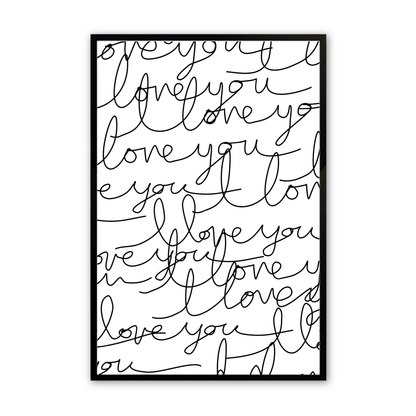 love you
I love you
I love yo
I love you
e you I lov
I love you
ove you I love y
I love
love you I l
you